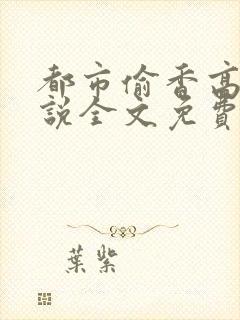 都市偷香高
說全文免費
葉紫